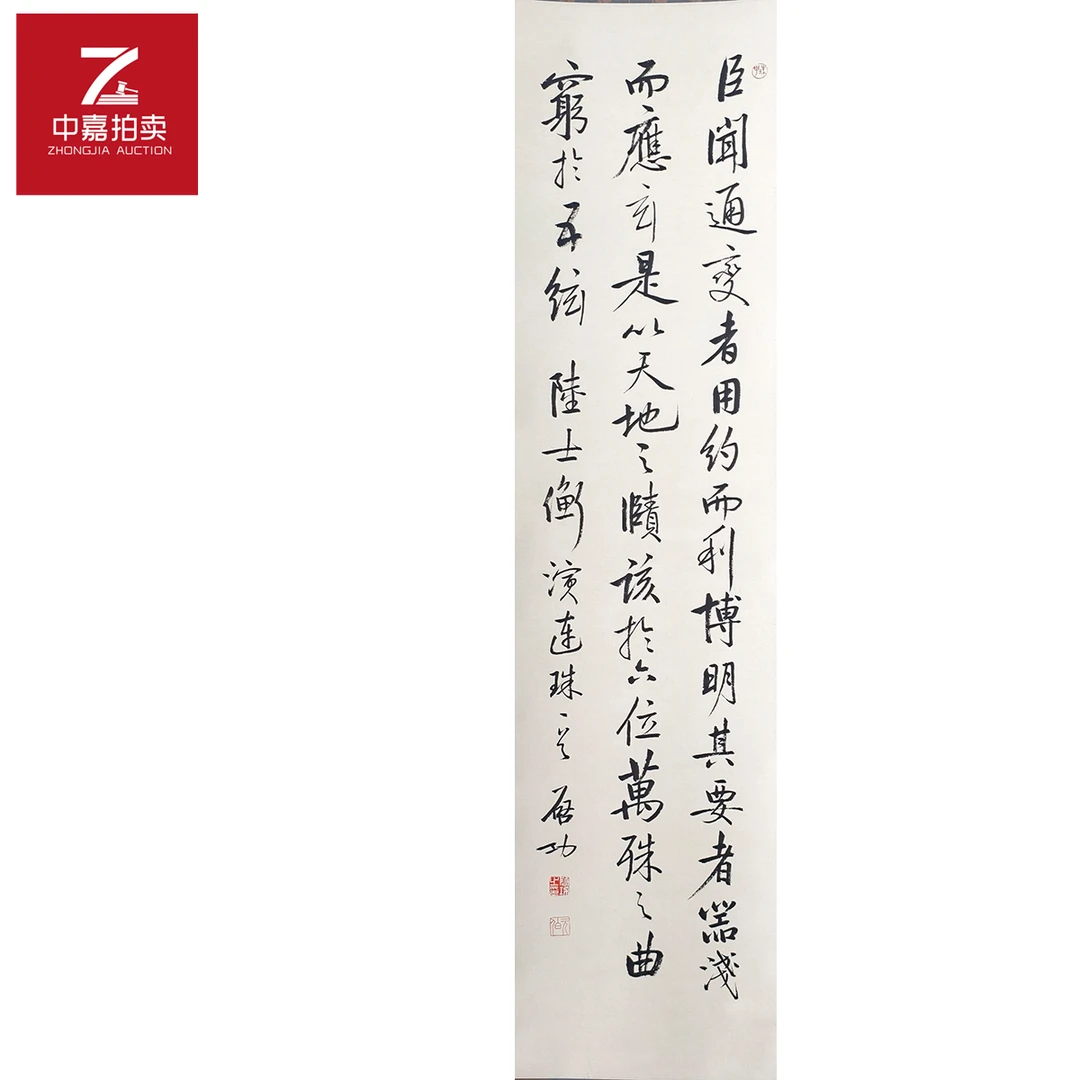 中嘉拍卖
ZHONGJIA AUCTION
臣聞通變者用約而利博明其要者器淺
而應玄是以天地之賾該於六位萬殊之曲
窮於五絃 陸士衡演連珠一首 啟功